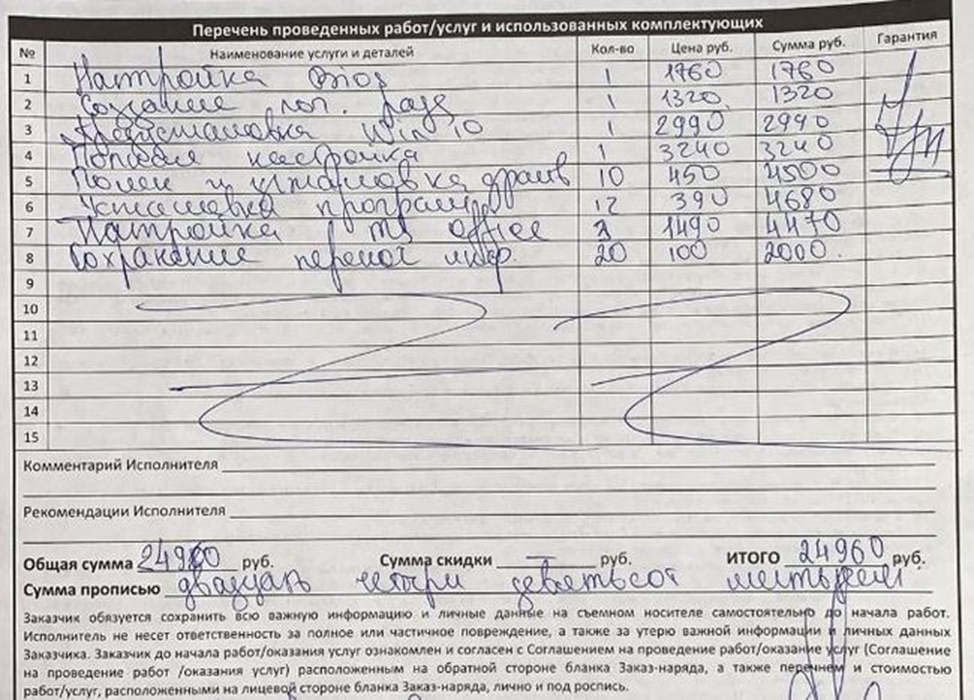 Перечень проведенных работ/услуг и использованных комплектующих
№ Наименование услуги и деталей Кол-во Цена руб. Сумма руб. Гарантия
1 Настройка Bios 1 1760 1760
2 Создание лог. 1 1320 1320
3 Предустановка Win 10 1 2990 2990
4 Полная настройка 1 3240 3240
5 Поиск и установка драйв 10 450 4500
6 Установка программ 12 390 4680
7 Настройка ms office 3 1490 4470
8 Сохранение перенос инф. 20 100 2000.
9
10
11
12
13
14
15
Комментарий Исполнителя
Рекомендации Исполнителя
Общая сумма 24960 руб. Сумма скидки — руб. ИТОГО 24960 руб.
Сумма прописью двадцать четыри девятьсот шестьдесят
Заказчик обязуется сохранить всю важную информацию и личные данные на съемном носителе самостоятельно до начала работ.
Исполнитель не несет ответственность за полное или частичное повреждение, а также за утерю важной информации и личных данных
Заказчика. Заказчик до начала работ/оказания услуг ознакомлен и согласен с Соглашением на проведение работ/оказание услуг (Соглашение
на проведение работ /оказания услуг) расположенным на обратной стороне бланка Заказ-наряда, а также перечнем и стоимостью
работ/услуг, расположенными на лицевой стороне бланка Заказ-наряда, лично и под роспись.